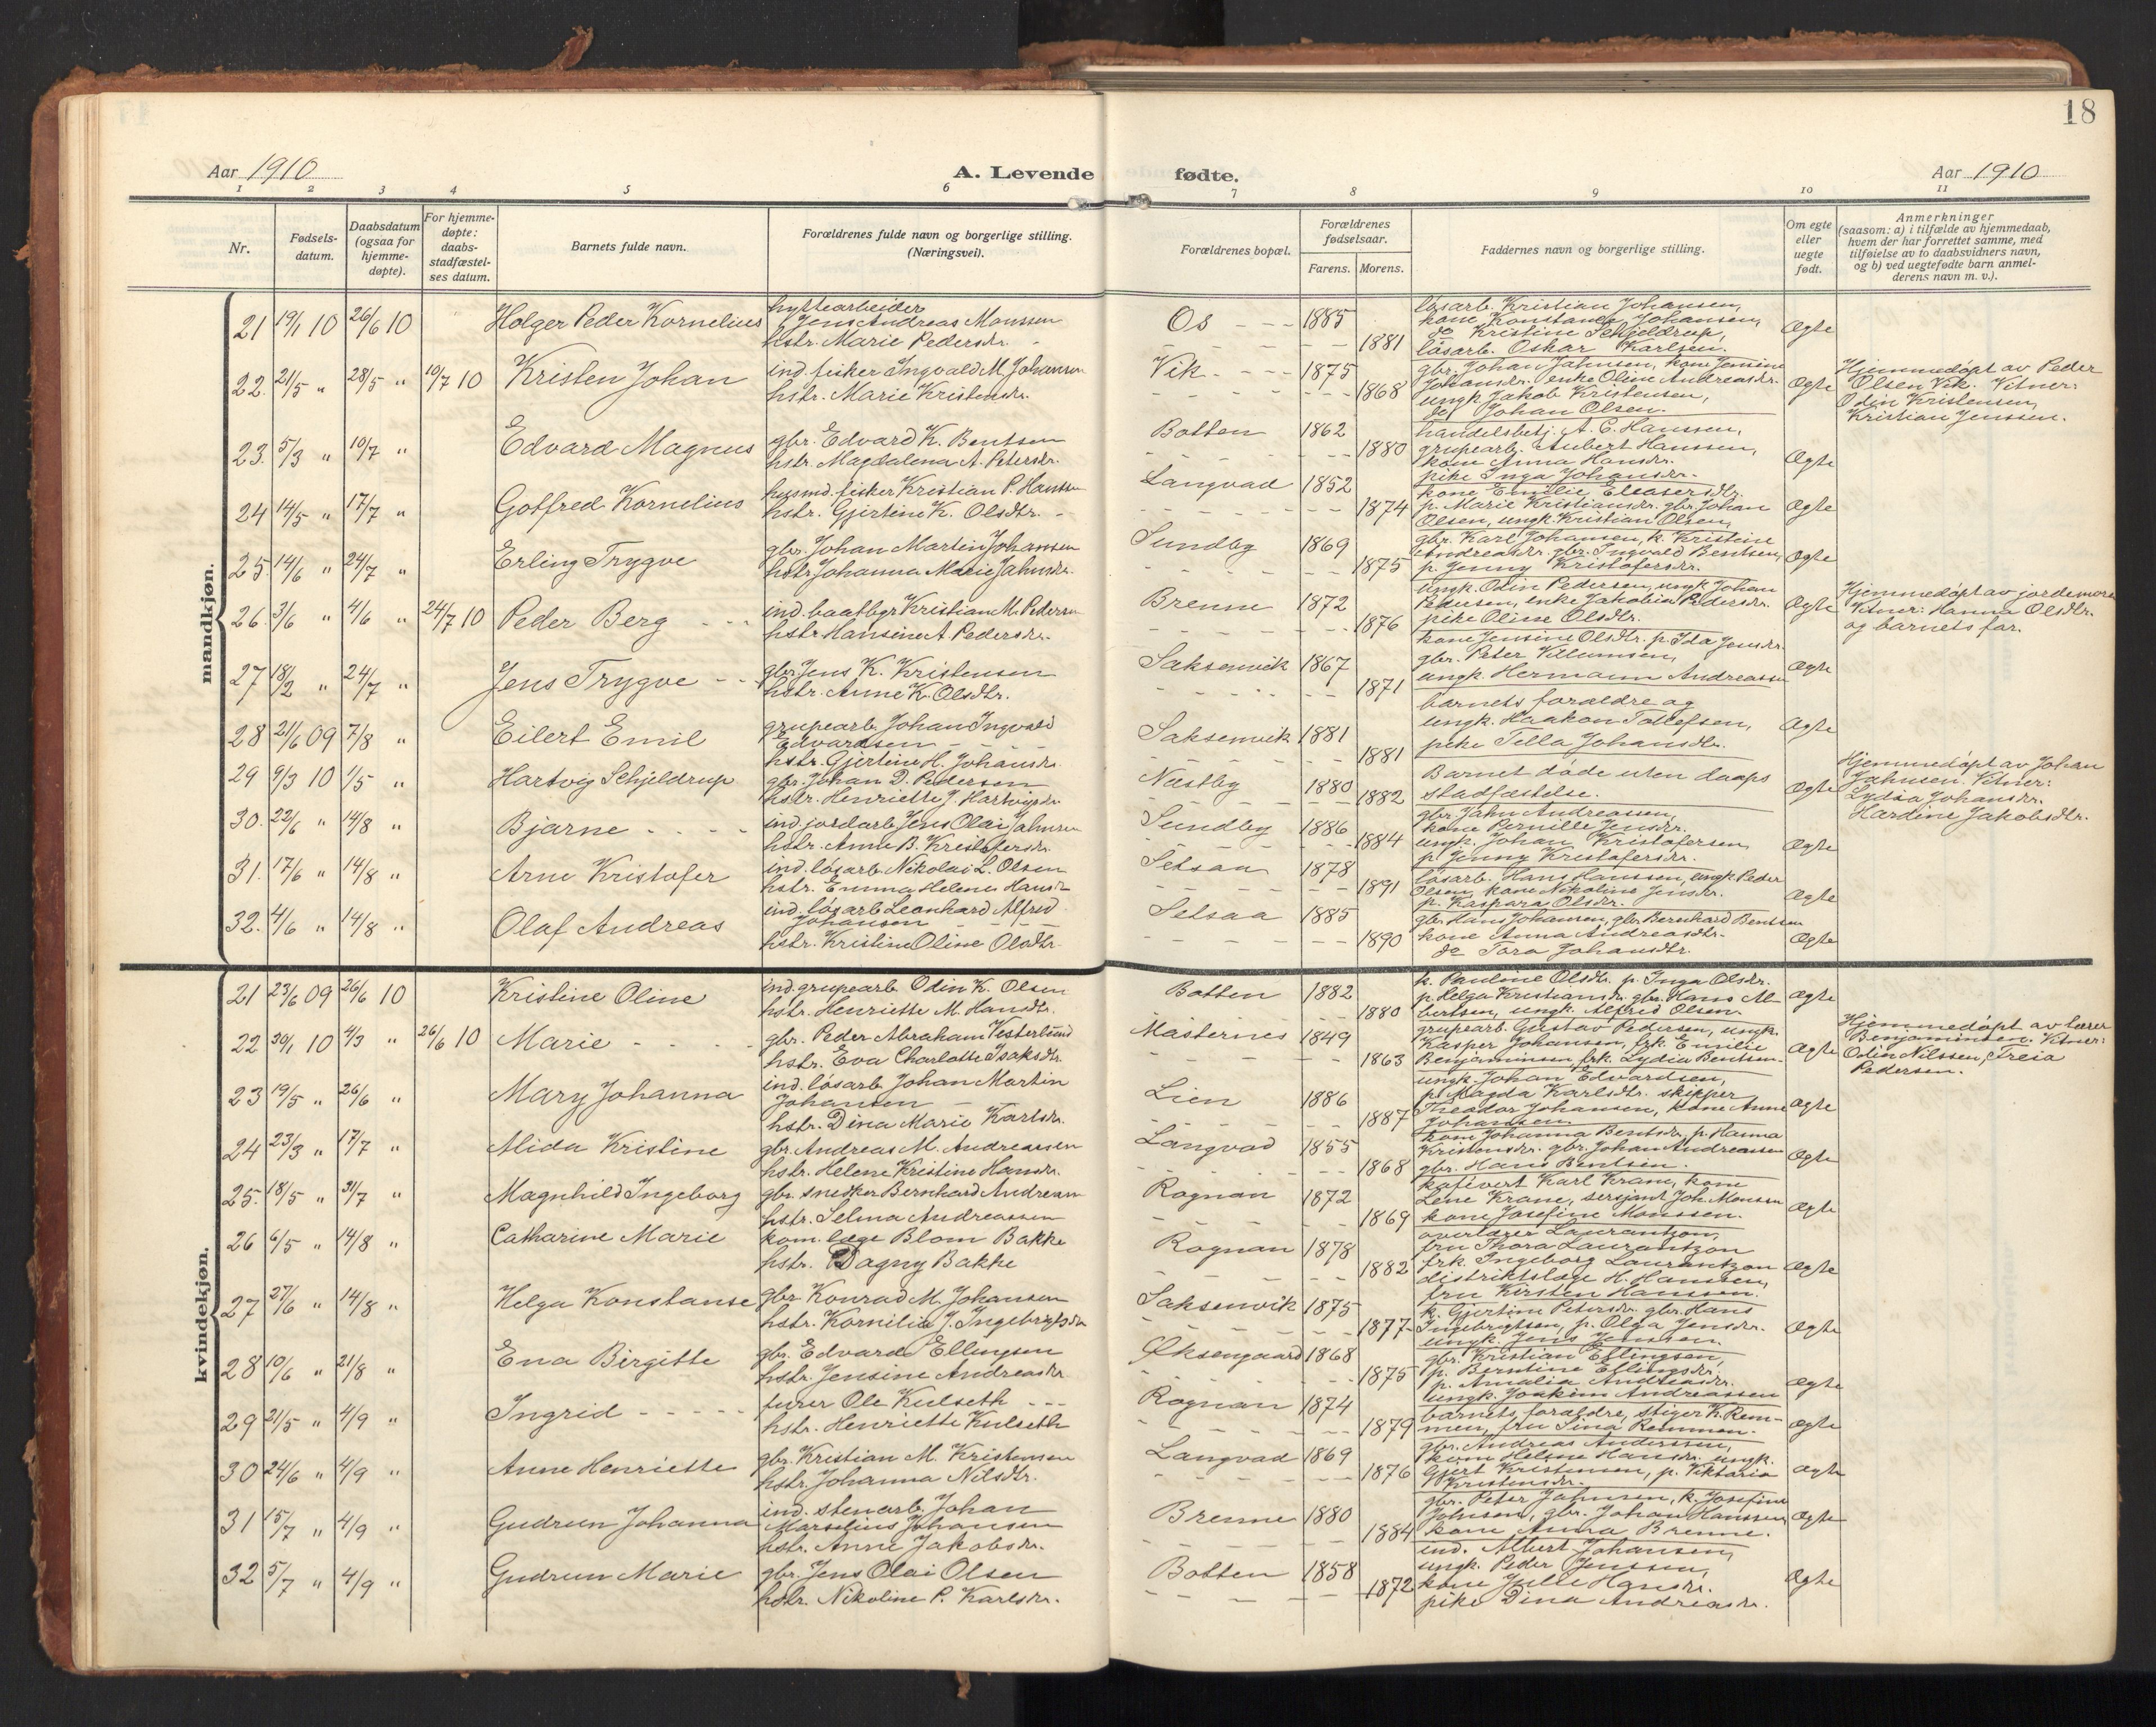 18
Aar 1910
A. Levende fødte.
Aar 1910
1 2 3 4 5 6 7 8 9 10 11
Nr.
Fødsels-
datum.
Daabsdatum
(ogsaa for
hjemme-
døpte).
For hjemme-
døpte:
daabs-
stadfæstel-
ses datum.
Barnets fulde navn.
Forældrenes fulde navn og borgerlige stilling.
(Næringsvei).
Forældrenes bopæl.
Forældrenes
fødselsaar.
Farens. Morens.
Faddernes navn og borgerlige stilling.
Om egte
eller
uegte
født.
Anmerkninger
(saasom: a) i tilfælde av hjemmedaab,
hvem der har forrettet samme, med
tilføielse av to daabsvidners navn,
og b) ved uegtefødte barn anmel-
derens navn m. v.).
mandkjøn.
21 19/1 10 26/6 10 Holger Peder Kornelius
hyttearbeider
Jens Andreas Monssen
hstr. Marie Pedersdr.
Os 1885 1881
løsarb. Kristian Johansen,
kone Konstanse Johansen,
do Kristine Schjeldrup,
løsarb. Oskar Karlsen.
Ægte
22. 21/5 " 28/5 " 10/7 10 Kristen Johan
ind. fisker Ingvald M. Johansen
hstr. Marie Kristensdr.
Vik 1875 1868
gbr. Johan Jahnsen, kone Jensine
Johansdr. enke Oline Andreasdr.
ungk. Jakob Kristensen,
do Johan Olsen.
Ægte
Hjemmedøpt av Peder
Olsen Vik. Vitner:
Odin Kristensen,
Kristian Jenssen.
23. 5/3 " 10/7 " Edvard Magnus
gbr. Edvard K. Bentsen
hstr. Magdalena A. Petersdr.
Botten 1862 1880
handelsbetj. A. E. Hanssen,
grupearb. Aubert Hanssen,
kone Anna Hansdr.
pike Inga Johansdr.
Ægte
24 14/5 " 17/7 " Gotfred Kornelius
husmd. fisker Kristian P. Hanssen
hstr. Gjertine K. Olsdtr.
Langvad 1852 1874
kone Emilie Eleasersdtr.
p. Marie Kristiansdr. gbr. Johan
Olsen, ungk. Kristian Olsen,
Ægte
25. 14/6 " 24/7 " Erling Trygve
gbr. Johan Martin Johansen
hstr. Johanna Marie Jahnsdr.
Sundby 1869 1875
gbr. Karl Johansen, k. Kristine
Andreasdr. gbr. Ingvald Bentsen,
p. Jenny Kristofersdr.
Ægte
26. 3/6 " 4/6 " 24/7 10 Peder Berg
ind. baatbgr. Kristian M. Pedersen
hstr. Hansine A. Pedersdr.
Brenne 1872 1876
ungk. Odin Pedersen, ungk. Johan
Pedersen, enke Jakobia Pedersdr.
pike Oline Olsdtr.
Ægte
Hjemmedøpt av jordemoren
Vitner: Hanna Olsdtr.
og barnets far.
27 18/2 " 24/7 " Jens Trygve
gbr. Jens K. Kristensen
hstr. Anne K. Olsdtr.
Saksenvik 1867 1871
kone Jensine Olsdtr. p. Ida Jensdr.
gbr. Peter Villumsen,
ungk. Hermann Andreassen
Ægte
28 21/6 09 7/8 " Eilert Emil
grupearb. Johan Ingvald
Edvardsen
hstr. Gjertine H. Johansdr.
Saksenvik 1881 1881
barnets foraldre og
ungk. Haakon Tollefsen,
pike Tella Johansdtr.
Ægte
29 9/3 10 1/5 " Hartvig Schjeldrup
gbr. Johan D. Pedersen
hstr. Henriette J. Hartvigsdr.
Næstby 1880 1882
Barnet døde uten daaps
stadfæstelse.
Ægte
Hjemmedøpt av Johan
Jahnsen. Vitner:
Lydia Johansdr.
Hardine Jakobsdtr.
30. 22/6 " 14/8 " Bjarne
ind. jordarb. Jens Olai Jahnsen
hstr. Anna B. Kristofersdr.
Sundby 1886 1884
gbr. Jahn Andreassen,
kone Pernille Jensdr.
ungk. Johan Kristofersen,
p. Jenny Kristofersdr.
Ægte
31. 17/6 " 14/8 " Arne Kristofer
ind. løsarb. Nikolai L. Olsen
hstr. Emma Helene Hansdr.
Setsaa 1878 1891
løsarb. Hans Hanssen, ungk. Peder
Olsen, kone Nikoline Jensdr.
p. Kaspara Olsdr.
Ægte
32. 4/6 " 14/8 " Olaf Andreas
ind. løsarb. Leonhard Alfred
Johansen
hstr. Kristine Oline Olsdtr.
Setsaa 1885 1890
gbr. Hans Johansen, gbr. Bernhard Bentsen
kone Anna Andreasdtr.
do Tora Johansdtr.
Ægte
kvindekjøn.
21 23/6 09 26/6 10 Kristine Oline
ind. grupearb. Odin K. Olsen
hstr. Henriette M. Hansdtr.
Botten 1882 1880
k. Pauline Olsdtr. p. Inga Olsdr.
p. Helga Kristiansdr. gbr. Hans Al-
bertsen, ungk. Alfred Olsen.
Ægte
22 30/1 10 4/3 " 26/6 10 Marie
gbr. Peder Abraham Vesterlund
hstr. Eva Charlotte Isaksdtr.
Masternes 1849 1863
grupearb. Gustav Pedersen, ungk.
Kasper Johansen, frk. Emilie
Benjaminsen, frk. Lydia Bentsen.
Ægte
Hjemmedøpt av lærer
Benjaminsen. Vitner:
Odin Nilssen, Freia
Pedersen.
23 19/5 " 26/6 " Mary Johanna
ind. løsarb. Johan Martin
Johansen
hstr. Dina Marie Karlsdr.
Lien 1886 1887
ungk. Johan Edvardsen,
p. Magda Karlsdtr. skipper
Theodor Johansen, kone Anne
Johansen.
Ægte
24 23/3 " 17/7 " Alida Kristine
gbr. Andreas M. Andreassen
hstr. Helene Kristine Hansdr.
Langvad 1855 1868
kone Johanna Bentsdr. p. Hanna
Kristensdr. gbr. Johan Andreassen
gbr. Hans Bentsen.
Ægte
25. 18/5 " 31/7 " Magnhild Ingeborg
gbr. snedker Bernhard Andreassen
hstr. Selma Andreassen
Rognan 1872 1869
kafévert Karl Krane, kone
Lene Krane, sersjant Joh. Monssen
kone Josefine Monssen.
Ægte
26 6/5 " 14/8 " Catharine Marie
kom. læge Blom Bakke
hstr. Dagny Bakke
Rognan 1878 1882
overlærer Laurantzon,
fru Thora Laurantzon
frk. Ingeborg Laurantzon
distriktslæge H. Hanssen,
fru Kirsten Hanssen.
Ægte
27 27/6 " 14/8 " Helga Konstanse
gbr. Konrad M. Johansen
hstr. Kornelia J. Ingebrigtsdr.
Saksenvik 1875 1877
k. Gjertine Petersdr. gbr. Hans
Ingebrigtsen, p. Olga Jensdr.
ungk. Jens Jenssen.
Ægte
28 10/6 " 21/8 " Ena Birgitte
gbr. Edvard Ellingsen
hstr. Jensine Andreasdr.
Øksengaard 1868 1875
gbr. Kristian Ellingsen,
p. Berntine Ellingsdr.
p. Amalia Andreasdr.
ungk. Joakim Andreassen
Ægte
29 21/5 " 4/9 " Ingrid
furer Ole Kulseth
hstr. Henriette Kulseth
Rognan 1874 1879
barnets foraldre, stiger K. Rem-
men, fru Sina Remmen.
Ægte
30 24/6 " 4/9 " Anne Henriette
gbr. Kristian M. Kristensen
hstr. Johanna Nilsdtr.
Langvad 1869 1876
gbr. Andreas Anderssen,
kone Helene Hansdr. ungk.
Gjert Kristensen, p. Viktoria
Kristensdr.
Ægte
31 15/7 " 4/9 " Gudrun Johanna
ind. stenarb. Johan
Marselius Johansen
hstr. Anne Jakobsdr.
Brenne 1880 1884
gbr. Peter Jahnsen, k. Josefine
Johnsen, gbr. Johan Hanssen,
kone Anna Brenne.
Ægte
32 5/7 " 4/9 " Gudrun Marie
gbr. Jens Olai Olsen
hstr. Nikoline P. Karlsdr.
Botten 1858 1872
ind. Albert Johansen,
ungk. Peder Jenssen,
kone Julle Hansdr.
pike Dina Andreasdr.
Ægte